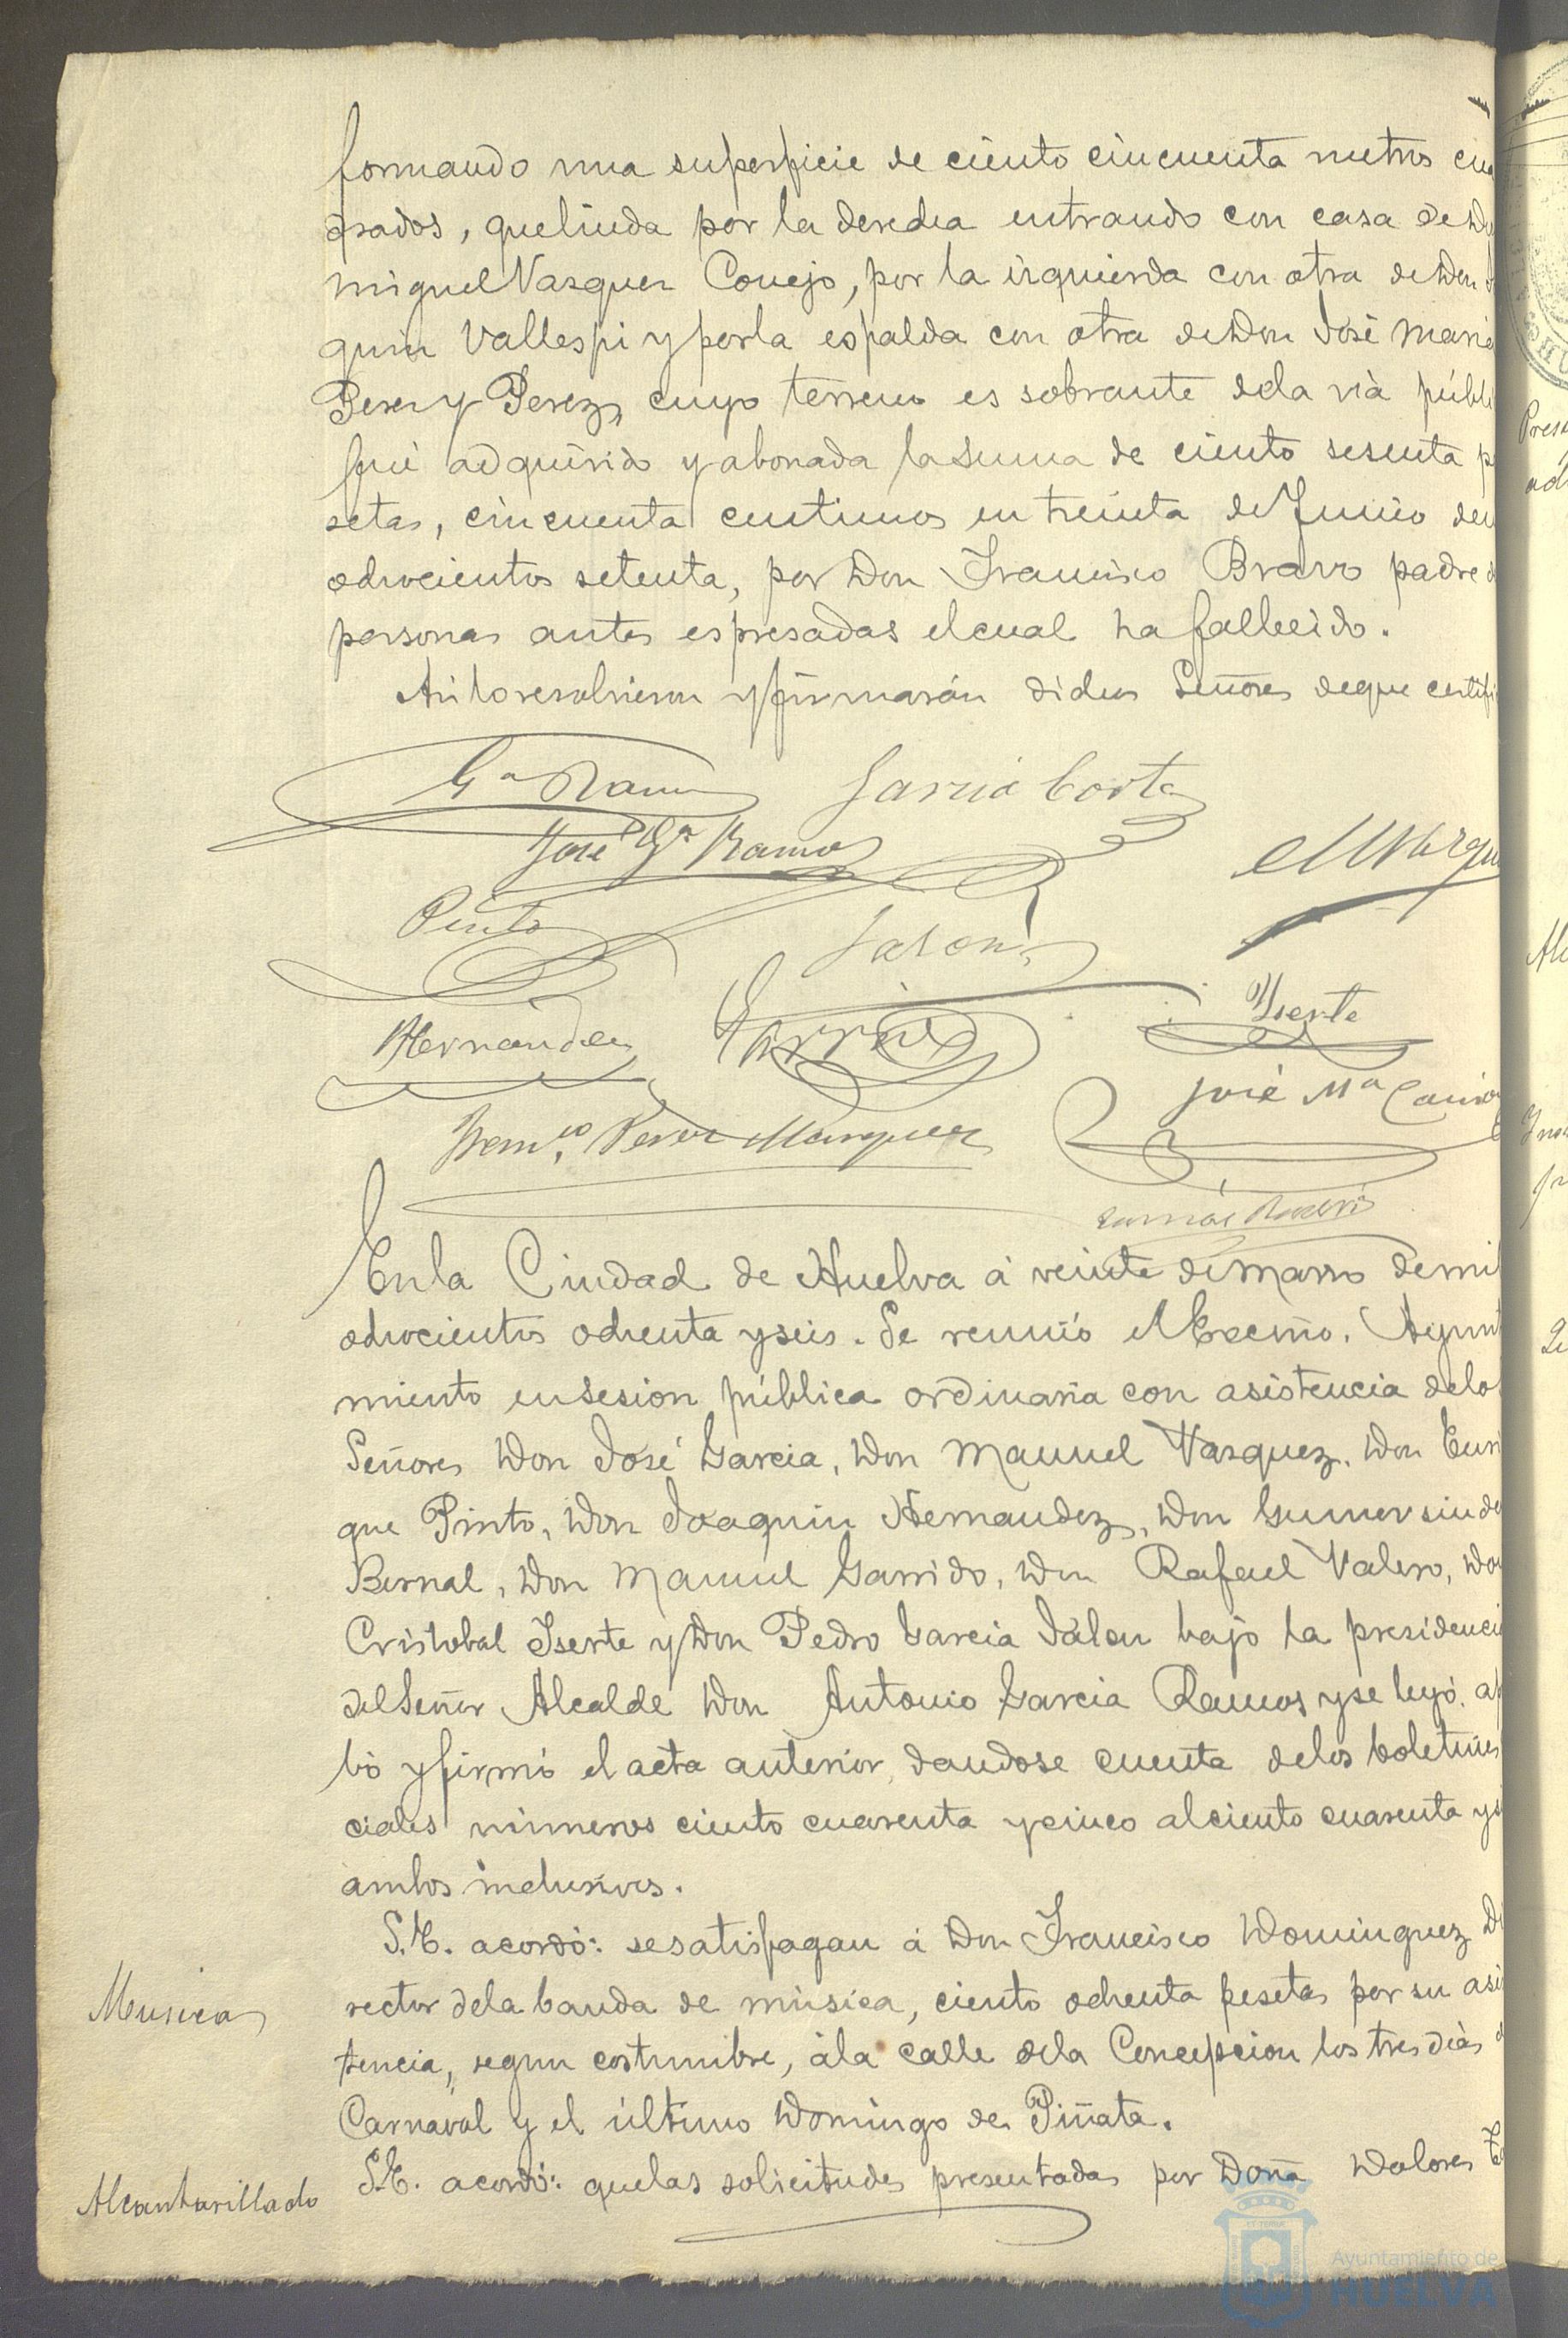 formando una superficie de ciento cincuenta metros cua
drados, que linda por la derecha entrando con casa de Don
Miguel Vazquez Conejo, por la izquierda con otra de Don
quin Vallespi y por la espalda con otra de Don José Maria
Perez y Perez, cuyo terreno es sobrante de la via públi
fué adquirido y abonada la suma de ciento sesenta pe
setas, cincuenta centimos en treinta de Junio de
ochocientos setenta, por Don Francisco Bravo padre
personas antes espresadas el cual ha fallecido.
Asi lo resolvieron y firmarán dichos Señores de que certifi
Gª Ramos
Garcia Corte
José Gª Ramos
MVazqu
Pinto
Jalon
Hernandez
Garrido
Yserte
José Mª
Franco Perez Marquez
En la Ciudad de Huelva á veinte de Marzo de mil
ochocientos ochenta y seis. Se reunió el Excmo. Ayunt
miento en sesion pública ordinaria con asistencia de los
Señores Don José Garcia, Don Manuel Vazquez, Don Enri
que Pinto, Don Joaquin Hernandez, Don Gumersindo
Bernal, Don Manuel Garrido, Don Rafael Valero, Don
Cristobal Yserte y Don Pedro Garcia Jalon bajo la presidencia
del Señor Alcalde Don Antonio Garcia Ramos y se leyó, ap
bó y firmó el acta anterior, dandose cuenta de los boletines
ciales números ciento cuarenta y cinco al ciento cuarenta y
ambos inclusives.
S.E. acordó: se satisfagan á Don Francisco Dominguez Di
Musica
rector de la banda de música, ciento ochenta pesetas por su asis
tencia, segun costumbre, á la calle de la Concepcion los tres dias
Carnaval y el último Domingo de Piñata.
Alcantarillado
S.E. acordó: que las solicitudes presentadas por Doña Dolores
Ayuntamiento de
HUELVA